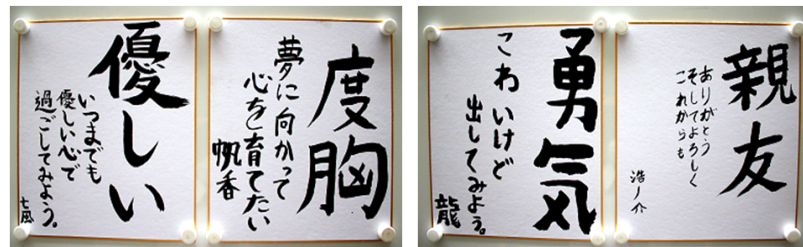 優しい
いつまでも
優しい心で
過ごしてみよう。
七風
度胸
夢に向かって
心を育てたい
帆香
勇気
こわいけど
出してみよう。
龍
親友
ありがとう
そしてよろしく
これからも
浩ノ介